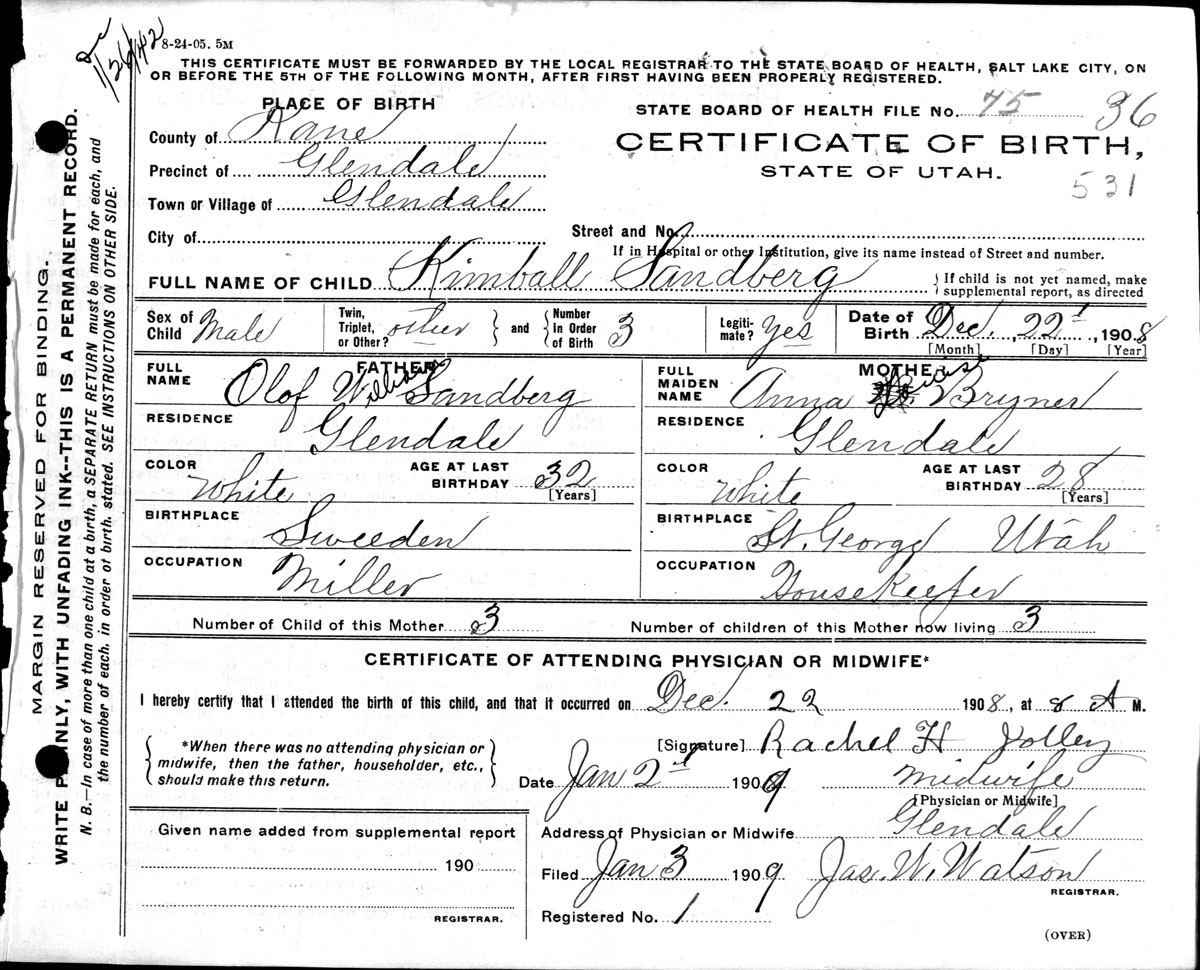 1/26/42
8-24-05. 5M
THIS CERTIFICATE MUST BE FORWARDED BY THE LOCAL REGISTRAR TO THE STATE BOARD OF HEALTH, SALT LAKE CITY, ON
OR BEFORE THE 5TH OF THE FOLLOWING MONTH, AFTER FIRST HAVING BEEN PROPERLY REGISTERED.
MARGIN RESERVED FOR BINDING.
WRITE PLAINLY, WITH UNFADING INK--THIS IS A PERMANENT RECORD.
N. B.—In case of more than one child at a birth, a SEPARATE RETURN must be made for each, and
the number of each, in order of birth, stated. SEE INSTRUCTIONS ON OTHER SIDE.
PLACE OF BIRTH
County of Kane
Precinct of Glendale
Town or Village of Glendale
City of
STATE BOARD OF HEALTH FILE No. 75 36
CERTIFICATE OF BIRTH,
STATE OF UTAH.
531
Street and No.
If in Hospital or other Institution, give its name instead of Street and number.
FULL NAME OF CHILD Kimball Sandberg
If child is not yet named, make
supplemental report, as directed
Sex of Child Male
Twin, Triplet, or Other? other and Number In Order of Birth 3
Legitimate? Yes
Date of Birth Dec. 22 1908
[Month] [Day] [Year]
FATHER
FULL NAME Olof William Sandberg
RESIDENCE Glendale
COLOR White AGE AT LAST BIRTHDAY 32 [Years]
BIRTHPLACE Sweeden
OCCUPATION Miller
MOTHER
FULL MAIDEN NAME Anna Louise Bryner
RESIDENCE Glendale
COLOR White AGE AT LAST BIRTHDAY 28 [Years]
BIRTHPLACE St. George Utah
OCCUPATION Housekeeper
Number of Child of this Mother 3 Number of children of this Mother now living 3
CERTIFICATE OF ATTENDING PHYSICIAN OR MIDWIFE*
I hereby certify that I attended the birth of this child, and that it occurred on Dec. 22 1908, at 8 A M.
*When there was no attending physician or
midwife, then the father, householder, etc.,
should make this return.
[Signature] Rachel H Jolley
Date Jan 2 1909 midwife
[Physician or Midwife]
Address of Physician or Midwife Glendale
Filed Jan 3 1909 Jas. W. Watson
REGISTRAR.
Registered No. 1
Given name added from supplemental report
190
REGISTRAR.
(OVER)